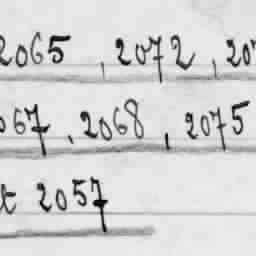 2065, 2072, 20
67, 2068, 2075
t 2057